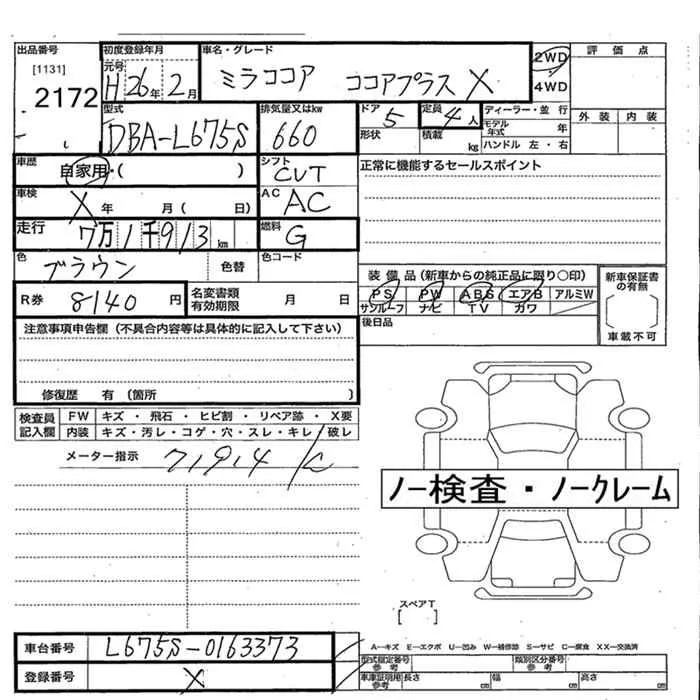 出品番号 初度登録年月 車名・グレード 2WD 評価点
[1131] 元号
2172 H26年2月 ミラココア ココアプラス X 4WD
型式 排気量又はkw ドア 定員 ディーラー・並行 外装 内装
DBA-L675S 660 5 4人 モデル年式 年
形状 積載 kg ハンドル 左・右
車歴 自家用・( ) シフト CVT 正常に機能するセールスポイント
車検 X 年 月( 日) AC AC
走行 7万1千913km 燃料 G
色 ブラウン 色替 色コード
装備品(新車からの純正品に限り○印) 新車保証書の有無
R券 8140円 名変書類有効期限 月 日 PS PW ABS エアB アルミW
サンルーフ ナビ TV カワ
後日品 車載不可
注意事項申告欄(不具合内容等は具体的に記入して下さい)
修復歴 有(箇所 )
検査員記入欄 FW キズ・飛石・ヒビ割・リペア跡・X要
内装 キズ・汚レ・コゲ・穴・スレ・キレ・破レ
メーター指示 71914
ノー検査・ノークレーム
スペアT
[ ]
車台番号 L675S-0163373 A-キズ E-エクボ U-凹み W-補修跡 S-サビ C-腐食 XX-交換済
型式指定番号参考 類別区分番号参考
登録番号 X 車庫証明用参考 長さ cm 幅 cm 高さ cm